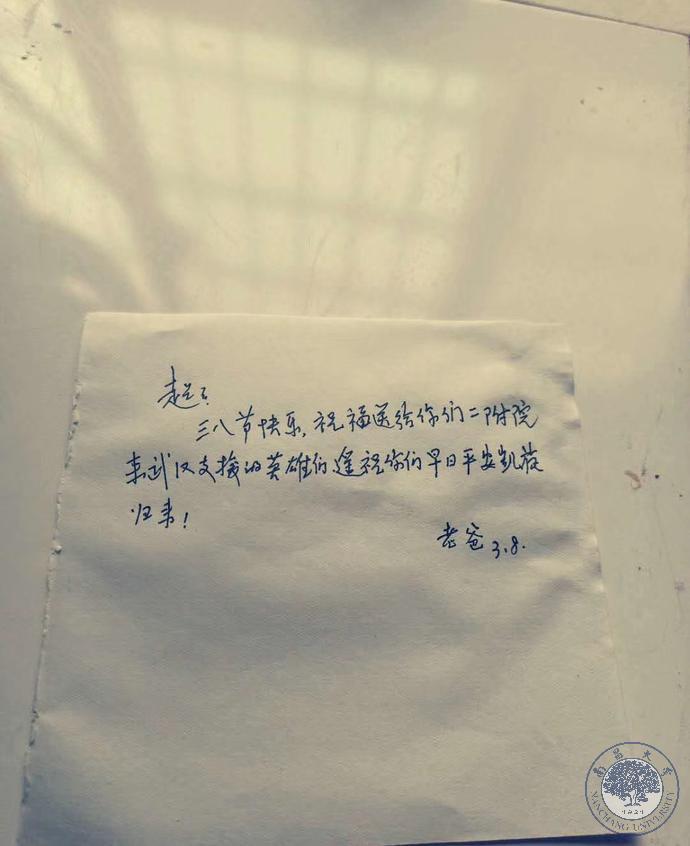 三八节快乐,祝福送给你们二附院
来武汉支援的英雄们遥祝你们早日平安凯旋
归来!
老爸 3.8.
南昌大学
NANCHANG UNIVERSITY